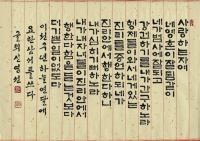 사랑하는자여
네영혼이잘됨같이
네가범사에잘되고
강건하기를내가간구하노라
형제들이와서네게있는
진리를증언하되네가
진리안에서행한다하니
내가심히기뻐하노라
내가내자녀들이진리안에서
행한다함을듣는것보다
더기쁜일이없도다
하늘연달에
요한삼서를쓰다